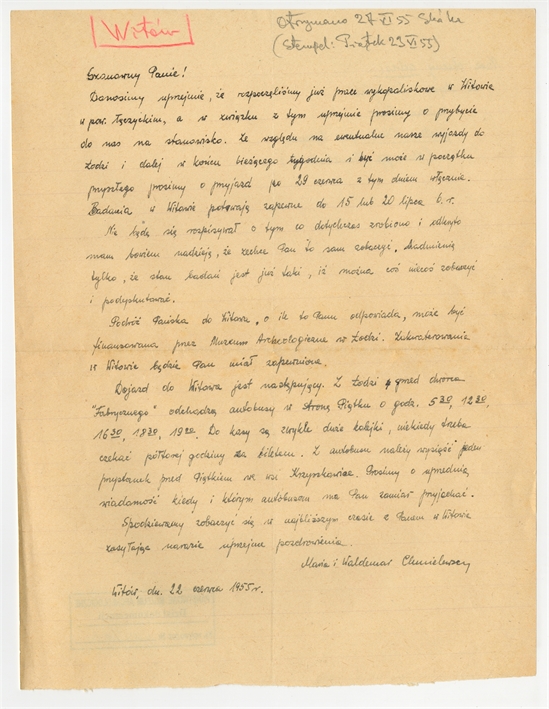 [Witów]
Otrzymano 27 VI 55
(Stempel: Piątek 23 VI 55)
Szanowny Panie!
Donosimy uprzejmie, że rozpoczęliśmy już prace wykopaliskowe w Witowie
w pow. Łęczyckim, a w związku z tym uprzejmie prosimy o przybycie
do nas na stanowisko. Ze względu na ewentualne nasze wyjazdy do
Łodzi i dalej w końcu bieżącego tygodnia i być może w początku
przyszłego prosimy o przyjazd po 29 czerwca z tym dniem włącznie.
Badania w Witowie potrwają zapewne do 15 lub 20 lipca b.r.
Nie będę się rozpisywał o tym co dotychczas zrobiono i odkryto
mam bowiem nadzieję, że zechce Pan to sam zobaczyć. Nadmienię
tylko, że stan badań jest już taki, iż można coś niecoś zobaczyć
i podyskutować.
Podróż Pańska do Witowa, o ile to Panu odpowiada, może być
finansowana przez Muzeum Archeologiczne w Łodzi. Zakwaterowanie
w Witowie będzie Pan miał zapewnione.
Dojazd do Witowa jest następujący. Z Łodzi sprzed dworca
"Fabrycznego" odchodzą autobusy w stronę Piątku o godz. 5 30, 12 30,
16 30, 18 30, 19 20. Do kasy są zwykle duże kolejki, niekiedy trzeba
czekać półtorej godziny za biletem. Z autobusu należy wysiąść jeden
przystanek przed Piątkiem we wsi Krzyszkowice. Prosimy o uprzednią
wiadomość kiedy i którym autobusem ma Pan zamiar przyjechać.
Spodziewamy zobaczyć się w najbliższym czasie z Panem w Witowie
zasyłając narazie uprzejme pozdrowienia.
Maria i Waldemar Chmielewscy
Witów, dn. 22 czerwca 1955 r.